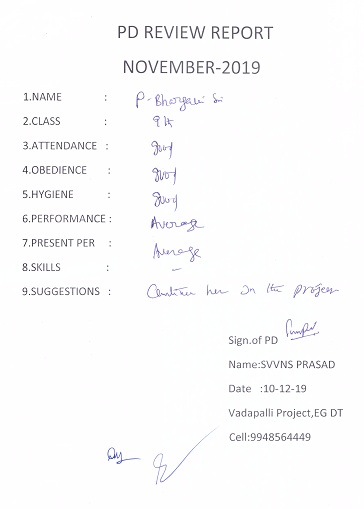 PD REVIEW REPORT
NOVEMBER-2019
1.NAME : P. Bhargavi Sri
2.CLASS : 9th
3.ATTENDANCE : good
4.OBEDIENCE : good
5.HYGIENE : good
6.PERFORMANCE : Average
7.PRESENT PER : Average
8.SKILLS : –
9.SUGGESTIONS : Continue her in the project
Sign.of PD
Name:SVVNS PRASAD
Date :10-12-19
Vadapalli Project,EG DT
Cell:9948564449